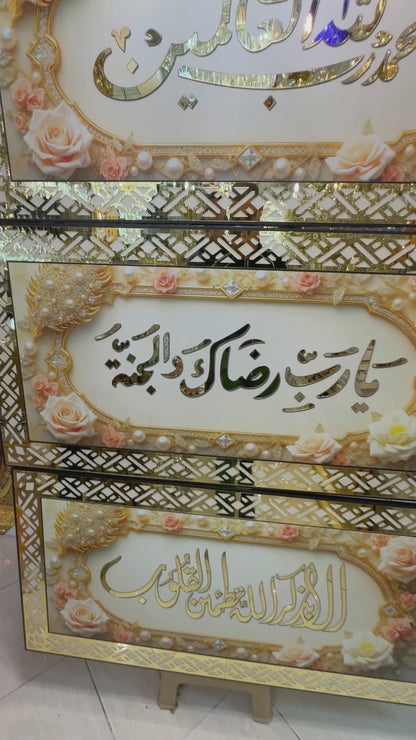 الحمد لله رب العالمين
يا رب رضاك والجنة
ألا بذكر الله تطمئن القلوب